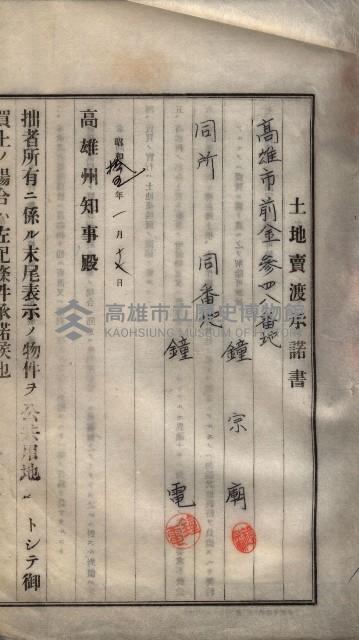 土地賣渡承諾書
高雄市前金參四八番地
鐘宗廟
同所 同番地
鐘電
昭和 年一月十七日
高雄州知事殿
拙者所有ニ係ル末尾表示ノ物件ヲ公共用地トシテ御
買上ノ場合ハ左記條件承諾候也
高雄市立歷史博物館
KAOHSIUNG MUSEUM OF HISTORY